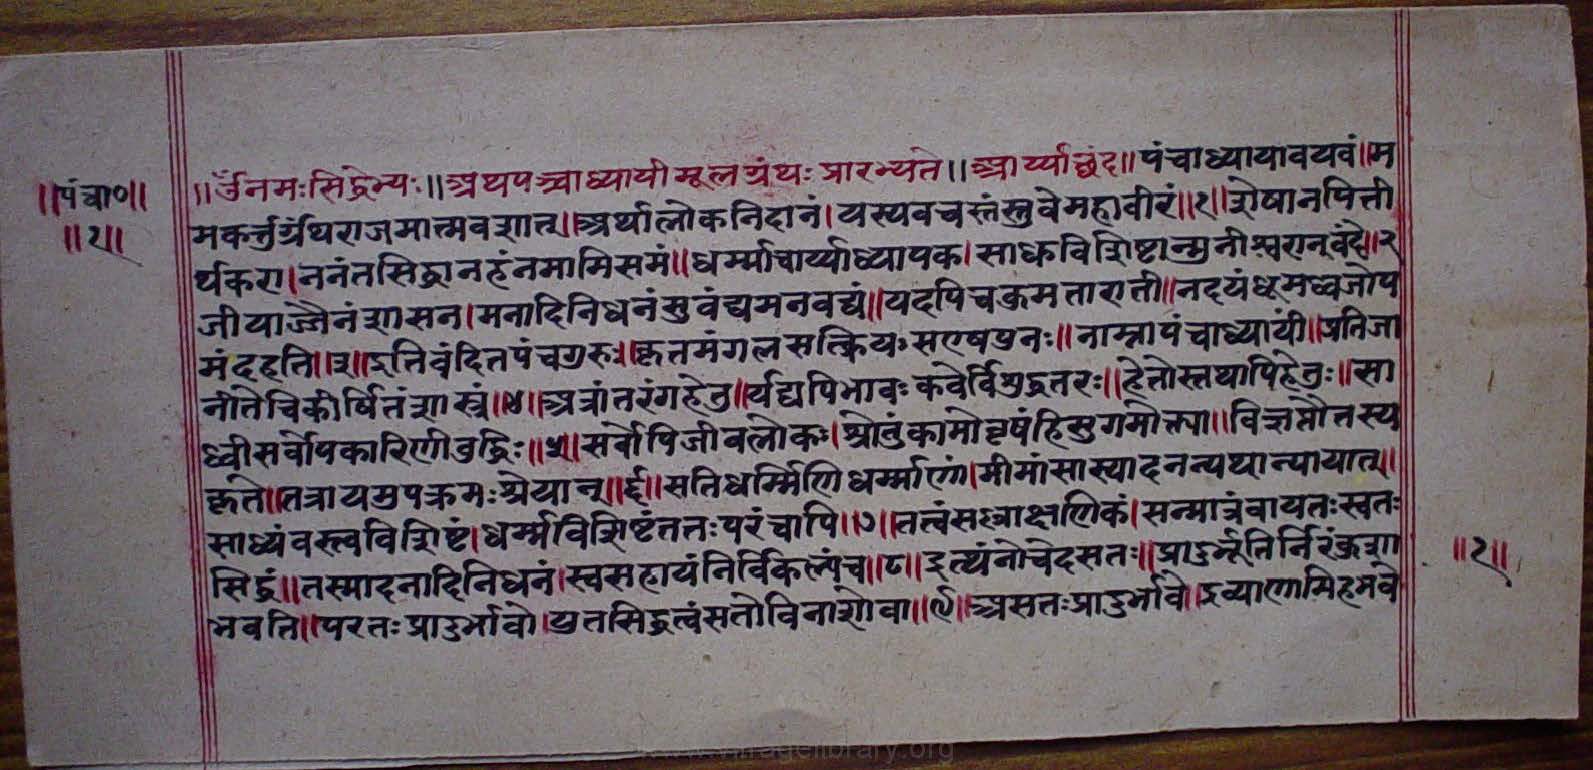 ॥पंचा०॥
॥१॥
॥ॐनमःसिद्धेभ्यः॥अथपञ्चाध्यायीमूलग्रंथःप्रारभ्यते॥आर्य्याछंद॥पंचाध्यायावयवं॥म
मकर्त्तुर्ग्रंथराजमात्मवशात्॥अर्थालोकनिदानं।यस्यवचस्तंस्तुवेमहावीरं॥१॥शेषानपिती
र्थकरा।ननंतसिद्धानहंनमामिसमं॥धर्म्माचार्य्याध्यापक।साधुविशिष्टान्मुनीश्वरान्वंदे॥२
जीयाज्जैनंशासन।मनादिनिधनंसुवंद्यमनवद्यं॥यदपिचकुमतारातीं॥नदयंधूमध्वजोप
मंदहति॥३॥इतिवंदितपंचगुरुः।कृतमंगलसत्क्रियःसएषपुनः॥नाम्नापंचाध्यायीं॥प्रतिजा
नीतेचिकीर्षितंशास्त्रं॥४॥अत्रांतरंगहेतु॥र्यद्यपिभावःकवेर्विशुद्धतरः॥हेतोस्तथापिहेतुः॥सा
ध्वीसर्वोपकारिणीबुद्धिः॥५॥सर्वोपिजीवलोकः।श्रोतुंकामोवृषंहिसुगमोक्त्या॥विज्ञप्तौतस्य
कृते॥तत्रायमुपक्रमःश्रेयान्॥६॥सतिधर्म्मिणिधर्म्माणां।मीमांसास्यादनन्यथान्यायात्॥
साध्यंवस्त्वविशिष्टं।धर्म्मविशिष्टंततःपरंचापि॥७॥तत्वंसल्लाक्षणिकं।सन्मात्रंवायतःस्वतः
सिद्धं॥तस्मादनादिनिधनं।स्वसहायंनिर्विकल्पंच॥८॥इत्थंनोचेदसतः॥प्रादुर्भूतिर्निरंकुशा
भवति॥परतःप्रादुर्भावो।युतसिद्धत्वंसतोविनाशोवा॥९॥असतःप्रादुर्भावे।द्रव्याणामिहभवे
॥१॥